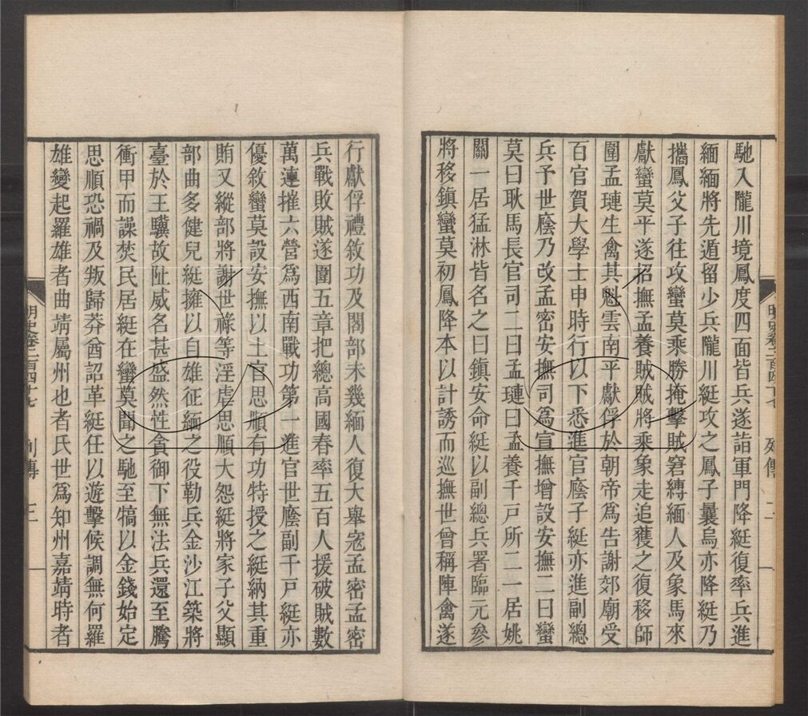 馳入隴川境鳳度四面皆兵遂詣軍門降綎復率兵進
緬緬將先遁留少兵隴川綎攻之鳳子曩烏亦降綎乃
攜鳳父子往攻蠻莫乘勝掩擊賊窘縛緬人及象馬來
獻蠻莫平遂招撫孟養賊賊將乘象走追獲之復移師
圍孟璉生禽其魁雲南平獻俘於朝帝爲告謝郊廟受
百官賀大學士申時行以下悉進官廕子綎亦進副總
兵予世廕乃改孟密安撫司爲宣撫增設安撫二曰蠻
莫曰耿馬長官司二曰孟璉曰孟養千戸所二一居姚
關一居猛淋皆名之曰鎮安命綎以副總兵署臨元參
將移鎮蠻莫初鳳降本以計誘而巡撫世曾稱陣禽遂
行獻俘禮敘功及閣部未幾緬人復大舉寇孟密孟密
兵戰敗賊遂圍五章把總高國春率五百人援破賊數
萬連摧六營爲西南戰功第一進官世廕副千戸綎亦
優敘蠻莫設安撫以土官思順有功特授之綎納其重
賄又縱部將謝世祿等淫虐思順大怨綎將家子父顯
部曲多健兒綎擁以自雄征緬之役勒兵金沙江築將
臺於王驥故阯威名甚盛然性貪御下無法兵還至騰
衝甲而譟焚民居綎在蠻莫聞之馳至犒以金錢始定
思順恐禍及叛歸莽酋詔革綎任以遊擊候調無何羅
雄變起羅雄者曲靖屬州也者氏世爲知州嘉靖時者
明史卷二百四十七
列傳
二
明史卷二百四十七
列傳
三